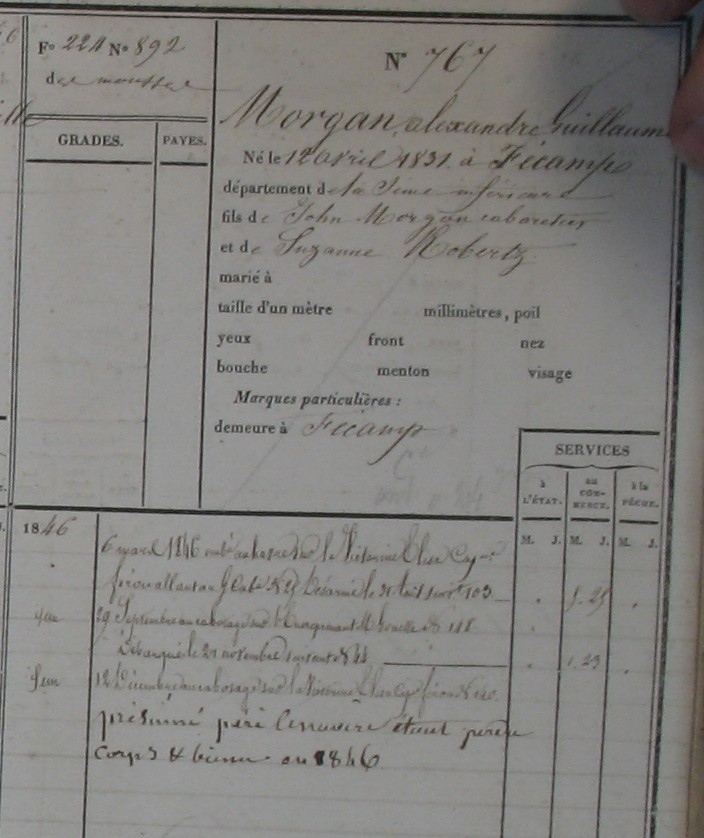 F° 224 N° 892
des mousses
GRADES.
PAYES.
N° 767
Morgan, alexandre Guillaume
Né le 12 avril 1831. à Fécamp
département de la Seine inférieure
fils de John Morgan cabaretier
et de Suzanne Robertz
marié à
taille d'un mètre millimètres, poil
yeux front nez
bouche menton visage
Marques particulières :
demeure à Fécamp
SERVICES
à L'ÉTAT. au COM-MERCE. à la PÊCHE.
M. J. M. J. M. J.
1846
6 mars 1846 au havre sur la Victorine Elisa Cap^ne
Désarmé le 31 1103
29 Septembre au cabotage sur M N 118
Débarqué le 21 novembre suivant N 1. 23
12 Décembre au cabotage sur la Victorine Elisa Cap^ne
présumé péri le navire étant perdu
corps & biens en 1846